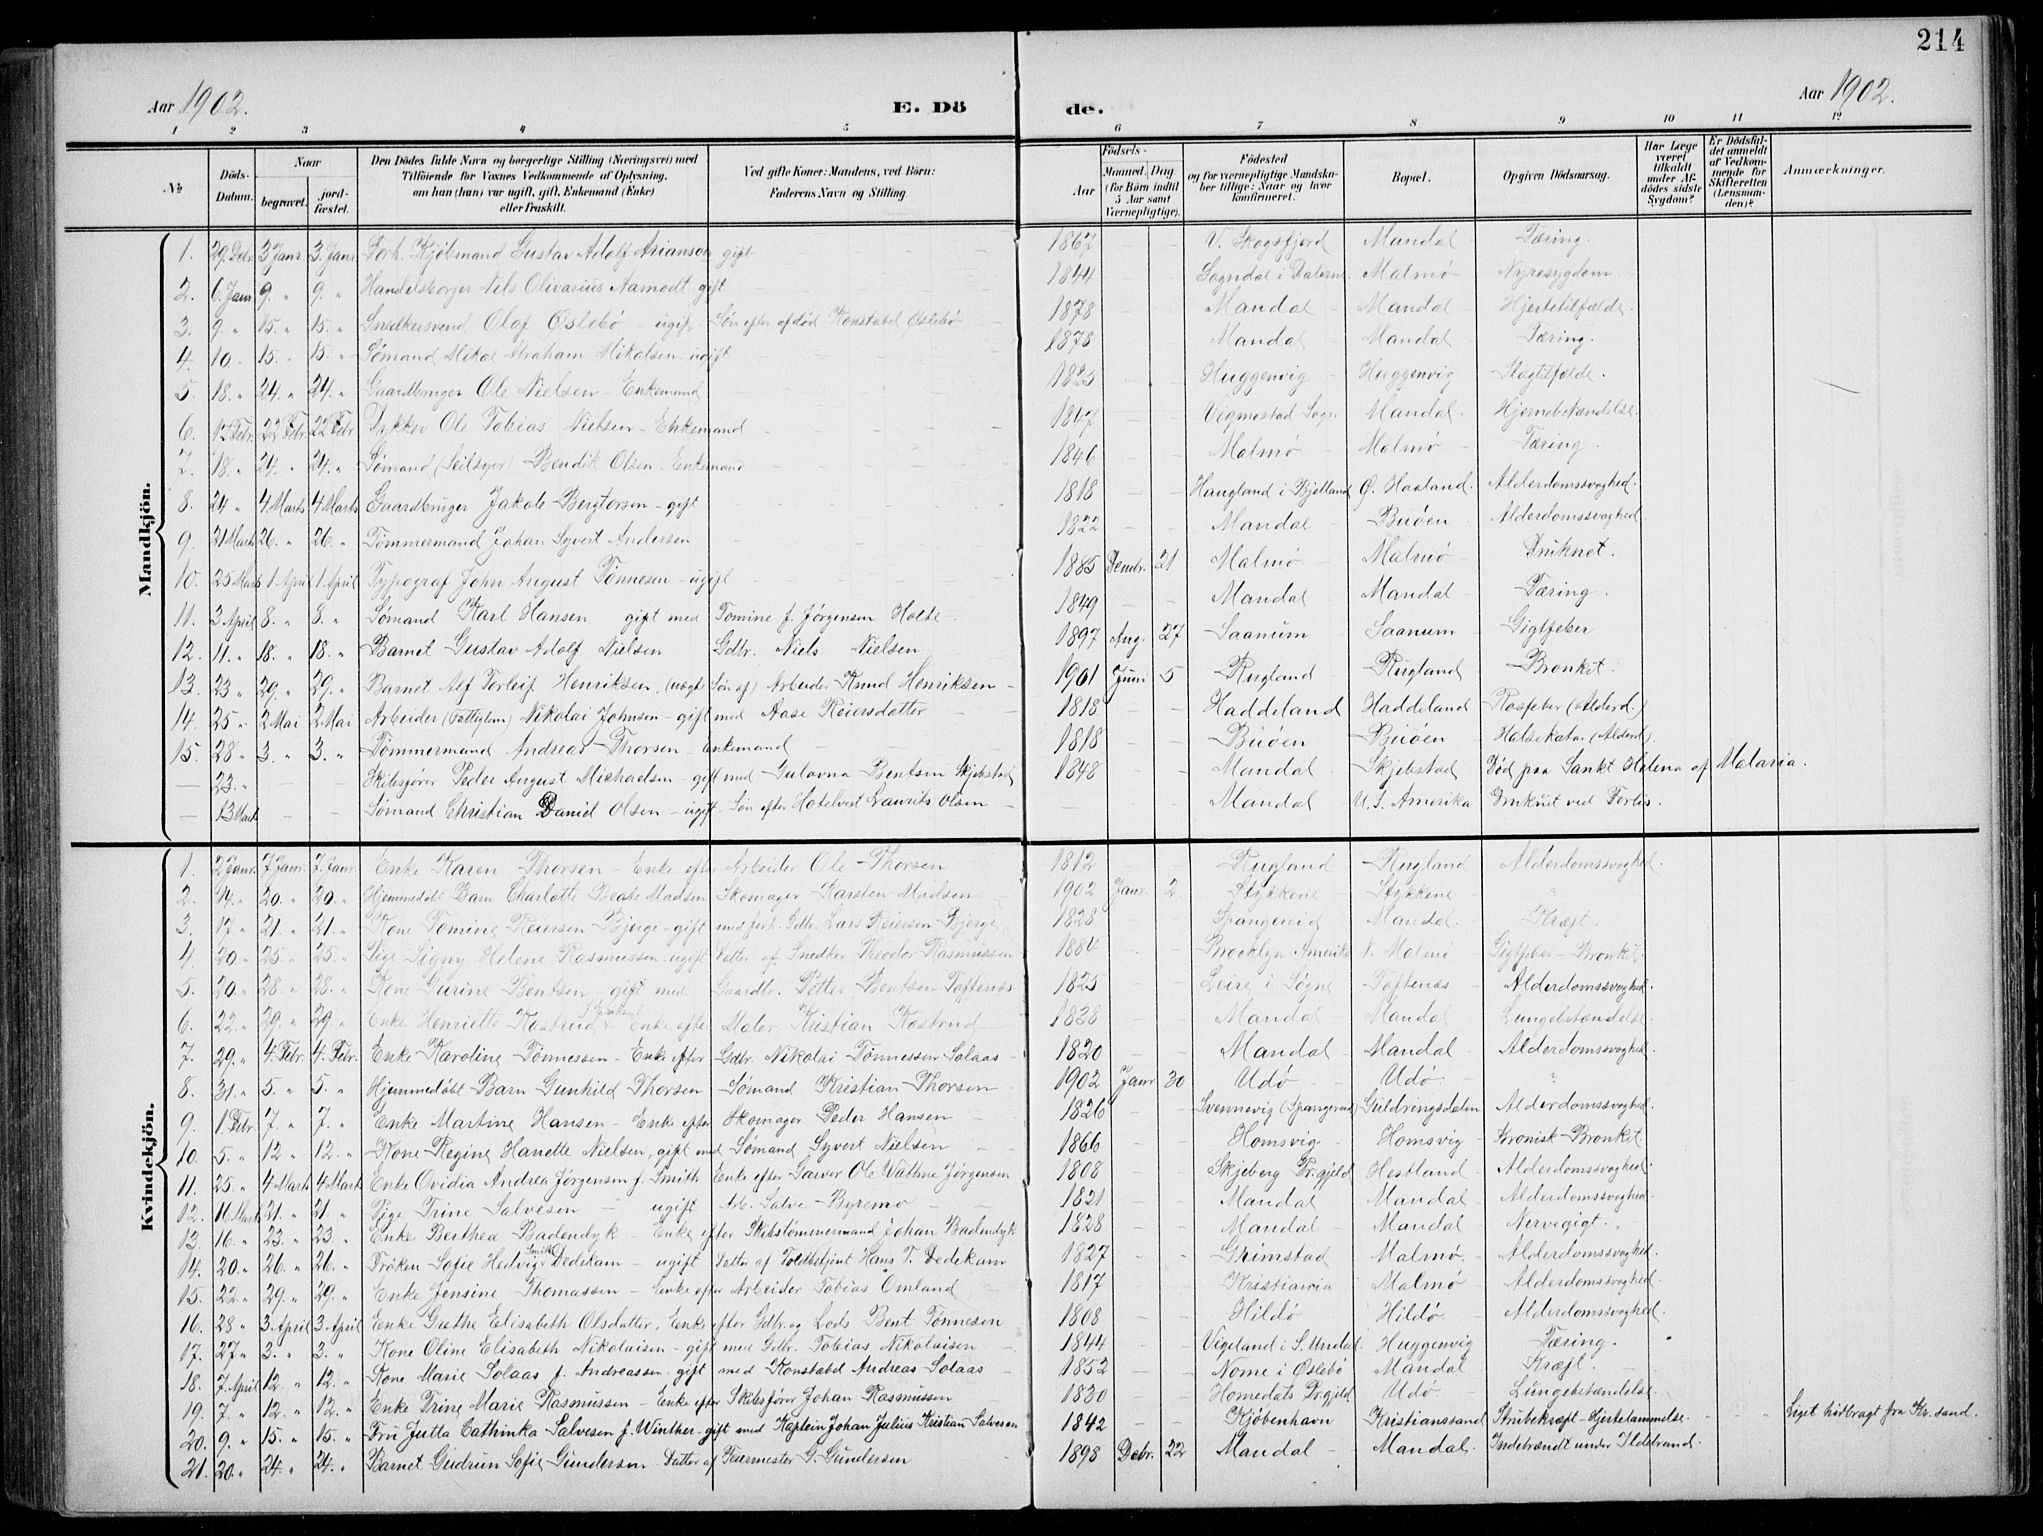 214
Aar 1902. E. Dö de. Aar 1902.
1 2 3 4 5 6 7 8 9 10 11 12
№ Döds-Datum. Naar begravet. jordfæstet. Den Dödes fulde Navn og borgerlige Stilling (Næringsvei) med Tilföiende for Voxnes Vedkommende af Oplysning, om han (hun) var ugift, gift, Enkemand (Enke) eller fraskilt. Ved gifte Koner: Mandens, ved Börn: Faderens Navn og Stilling. Födsels- Aar Maaned. Dag (for Börn indtil 5 Aar samt Værnepligtige). Födested og for værnepligtige Mandskaber tillige: Naar og hvor konfirmeret. Bopæl. Opgiven Dödsaarsag. Har Læge været tilkaldt under Afdödes sidste Sygdom? Er Dödsfaldet anmeldt af Vedkommende for Skifteretten (Lensmanden)? Anmærkninger.
Mandkjön.
1. 29. Debr. 3 Janr. 3. Janr. Forh. Kjöbmand Gustav Adolf Arianson gift 1867 V. Skogsfjord Mandal Tæring.
2. 6. Janr. 9. " 9. " Handelsborger Nils Olivarius Aamodt gift 1844 Sogndal i Dalerne. Malmö Nyresygdom
3. 9. " 15. " 15. " Snedkersvend Olaf Öslebö - ugift. Sön efter afdöd Konstabel Öslebö 1878 Mandal Mandal Hjertetilfælde.
4. 10. " 15. " 15. " Sömand Mikal Abraham Mikalsen - ugift 1875 Mandal Mandal Tæring.
5. 18. " 24. " 24. " Gaardbruger Ole Nielsen - Enkemand 1825 Huggenvig Huggenvig Slagtilfælde.
6. 12 Febr. 22 Febr. 22 Febr Dykker Ole Tobias Nielsen - Enkemand 1847 Vigmostad Sogn Mandal. Hjernebetændelse.
7. 18. " 24. " 24. " Sömand (Seilsyer) Bendik Olsen - Enkemand 1846 Malmö Malmö Tæring.
8. 24 " 4 Marts 4 Marts Gaardbruger Jakob Bergtorsen - gift 1818 Haugland i Bjelland Ö. Haaland. Alderdomssvaghed.
9. 21 Marts 26. " 26. " Tömmermand Johan Syvert Andersen 1822 Mandal Buöen Alderdomssvaghed
10. 25 Marts 1 April 1 April Typograf John August Tönnesen - ugift 1885 Dembr. 21 Malmö Malmö Druknet.
11. 3 April 8. " 8. " Sömand Karl Hansen gift med Tomine f. Jörgensen Holte. 1849 Mandal Mandal Tæring.
12. 11. " 18. " 18. " Barnet Gustav Adolf Nielsen Gdbr. Niels Nielsen 1897 Aug. 27 Saanum Saanum Gigtfeber
13. 23 " 29. " 29. " Barnet Alf Torleif Henriksen, (uægte Sön af) Arbeider Knud Henriksen 1901 Juni 5 Rugland Rugland Bronkit.
14. 25 " 2 Mai 2 Mai Arbeider (Fattiglem) Nikolai Johnsen - gift med Aase Reiersdatter 1818 Haddeland Haddeland Rosfeber (Alderd.)
15. 28 " 3. " 3. " Tömmermand Andreas Thorsen - Enkemand 1818 Buöen Buöen Halsekatar (Alderd.)
— 23. " Skibsförer Peder August Michaelsen - gift med Gulovna Bentsen Skjebstad 1848 Mandal Skjebstad Död paa Sankt Helena af Malaria.
— 13 Marts Sömand Christian Daniel Olsen - ugift - Sön efter Hotelvert Laurits Olsen Mandal U.S. Amerika Druknet ved Forlis.
Kvindekjön.
1. 2 Janr. 7 Janr. 7 Janr. Enke Karen Thorsen - Enke efter Arbeider Ole Thorsen 1812 Rugland Rugland Alderdomssvaghed.
2. 14. " 20. " 20. " Hjemmedöbt Barn Charlotte Beate Madsen Skomager Karsten Madsen 1902 Janr. 2 Stykkene Stykkene "
3. 17 " 21. " 21. " Kone Tomine Reiersen Bjerge - gift med forh. Gdbr. Lars Reiersen Bjerge 1828 Spangereid Mandal. Kræft.
4. 20 " 25. " 25. " Pige Signy Helene Rasmussen - ugift Datter af Snedker Theodor Rasmussen 1884 Brooklyn Amerika N. Malmö Gigtfeber - Bronkit.
5. 20. " 28. " 28. " Kone Surine Bentsen - gift med Gaardbr. Petter Bentsen Toftenæs 1825 Leire i Sögne Toftenæs Alderdomssvaghed.
6. 22. " 29. " 29. " Enke Henriette Kastrud - Enke efter Maler Kristian Kastrud 1838 Mandal Mandal Lungebetændelse.
7. 29. " 4. Febr. 4. Febr. Enke Karoline Tönnessen - Enke efter Gdbr. Nikolai Tönnessen Solaas 1820 Mandal Mandal Alderdomssvaghed
8. 31. " 5. " 5. " Hjemmedöbt Barn Gunhild Thorsen Sömand Kristian Thorsen 1902 Janr 30 Udö Udö "
9. 1. Febr. 7. " 7. " Enke Martine Hansen - Enke efter Skomager Peder Hansen 1826 Svennevig (Spangereid) Guldringsdalen Alderdomssvaghed.
10. 5. " 12 " 12. " Kone Regine Hanette Nielsen, gift med Sömand Syvert Nielsen 1866 Homsvig Homsvig Kronisk Bronkit.
11. 25. " 4 Marts 4 Marts Enke Ovidia Andrea Jörgensen f. Smith Enke efter Garver Ole Wathne Jörgensen 1808 Skjeberg Pr.gjeld Hestland Alderdomssvaghed.
12. 16 Marts 21. " 21. " Pige Trine Salvesen - ugift Arb. Salve Byremo 1821 Mandal Mandal Alderdomssvaghed.
13. 16. " 23. " 23. " Enke Berthea Badendyk - Enke efter Skibstömmermand Johan Badendyk 1828 Mandal Mandal Nervegigt.
14. 20. " 26. " 26. " Fröken Sofie Hedvig Smith Dedekam - ugift Datter af Toldbetjent Hans T. Dedekam 1827 Grimstad Malmö. Alderdomssvaghed.
15. 22. " 29. " 29. " Enke Jensine Thomassen - Enke efter Arbeider Tobias Omland 1817 Kristiania Malmö Alderdomssvaghed
16. 28 " 3 April 3 April Enke Grethe Elisabeth Olsdatter, Enke efter Gdbr. og Lods Bent Tönnesen 1808 Hildö Hildö. Alderdomssvaghed.
17. 27 " 3. " 3. " Kone Oline Elisabeth Nikolaisen - gift med Gdbr. Tobias Nikolaisen 1844 Vigeland i S. Undal. Huggenvig Tæring.
18. 7. April 12. " 12. " Kone Marie Solaas f. Andreassen - gift med Konstabel Andreas Solaas 1852 Nome i Öslebö Mandal Kræft.
19. 7. " 12. " 12. " Enke Trine Marie Rasmussen - Enke efter Skibsförer Johan Rasmussen 1830 Homedals Pr.gjeld Udö Lungebetændelse.
20. 9. " 15. " 15. " Fru Jutta Cathinka Salvesen f. Winther - gift med Kaptein Johan Julius Kristian Salvesen 1842 Kjöbenhavn Kristianssand Strubekræft - Hjertelammelse. Liget hidbragt fra Kr.sand.
21. 20. " 24. " 24. " Barnet Gudrun Sofie Gundersen. Datter af Feiermester G. Gundersen 1898 Debr. 22 Mandal Mandal. Indebrændt under Ildebrand.